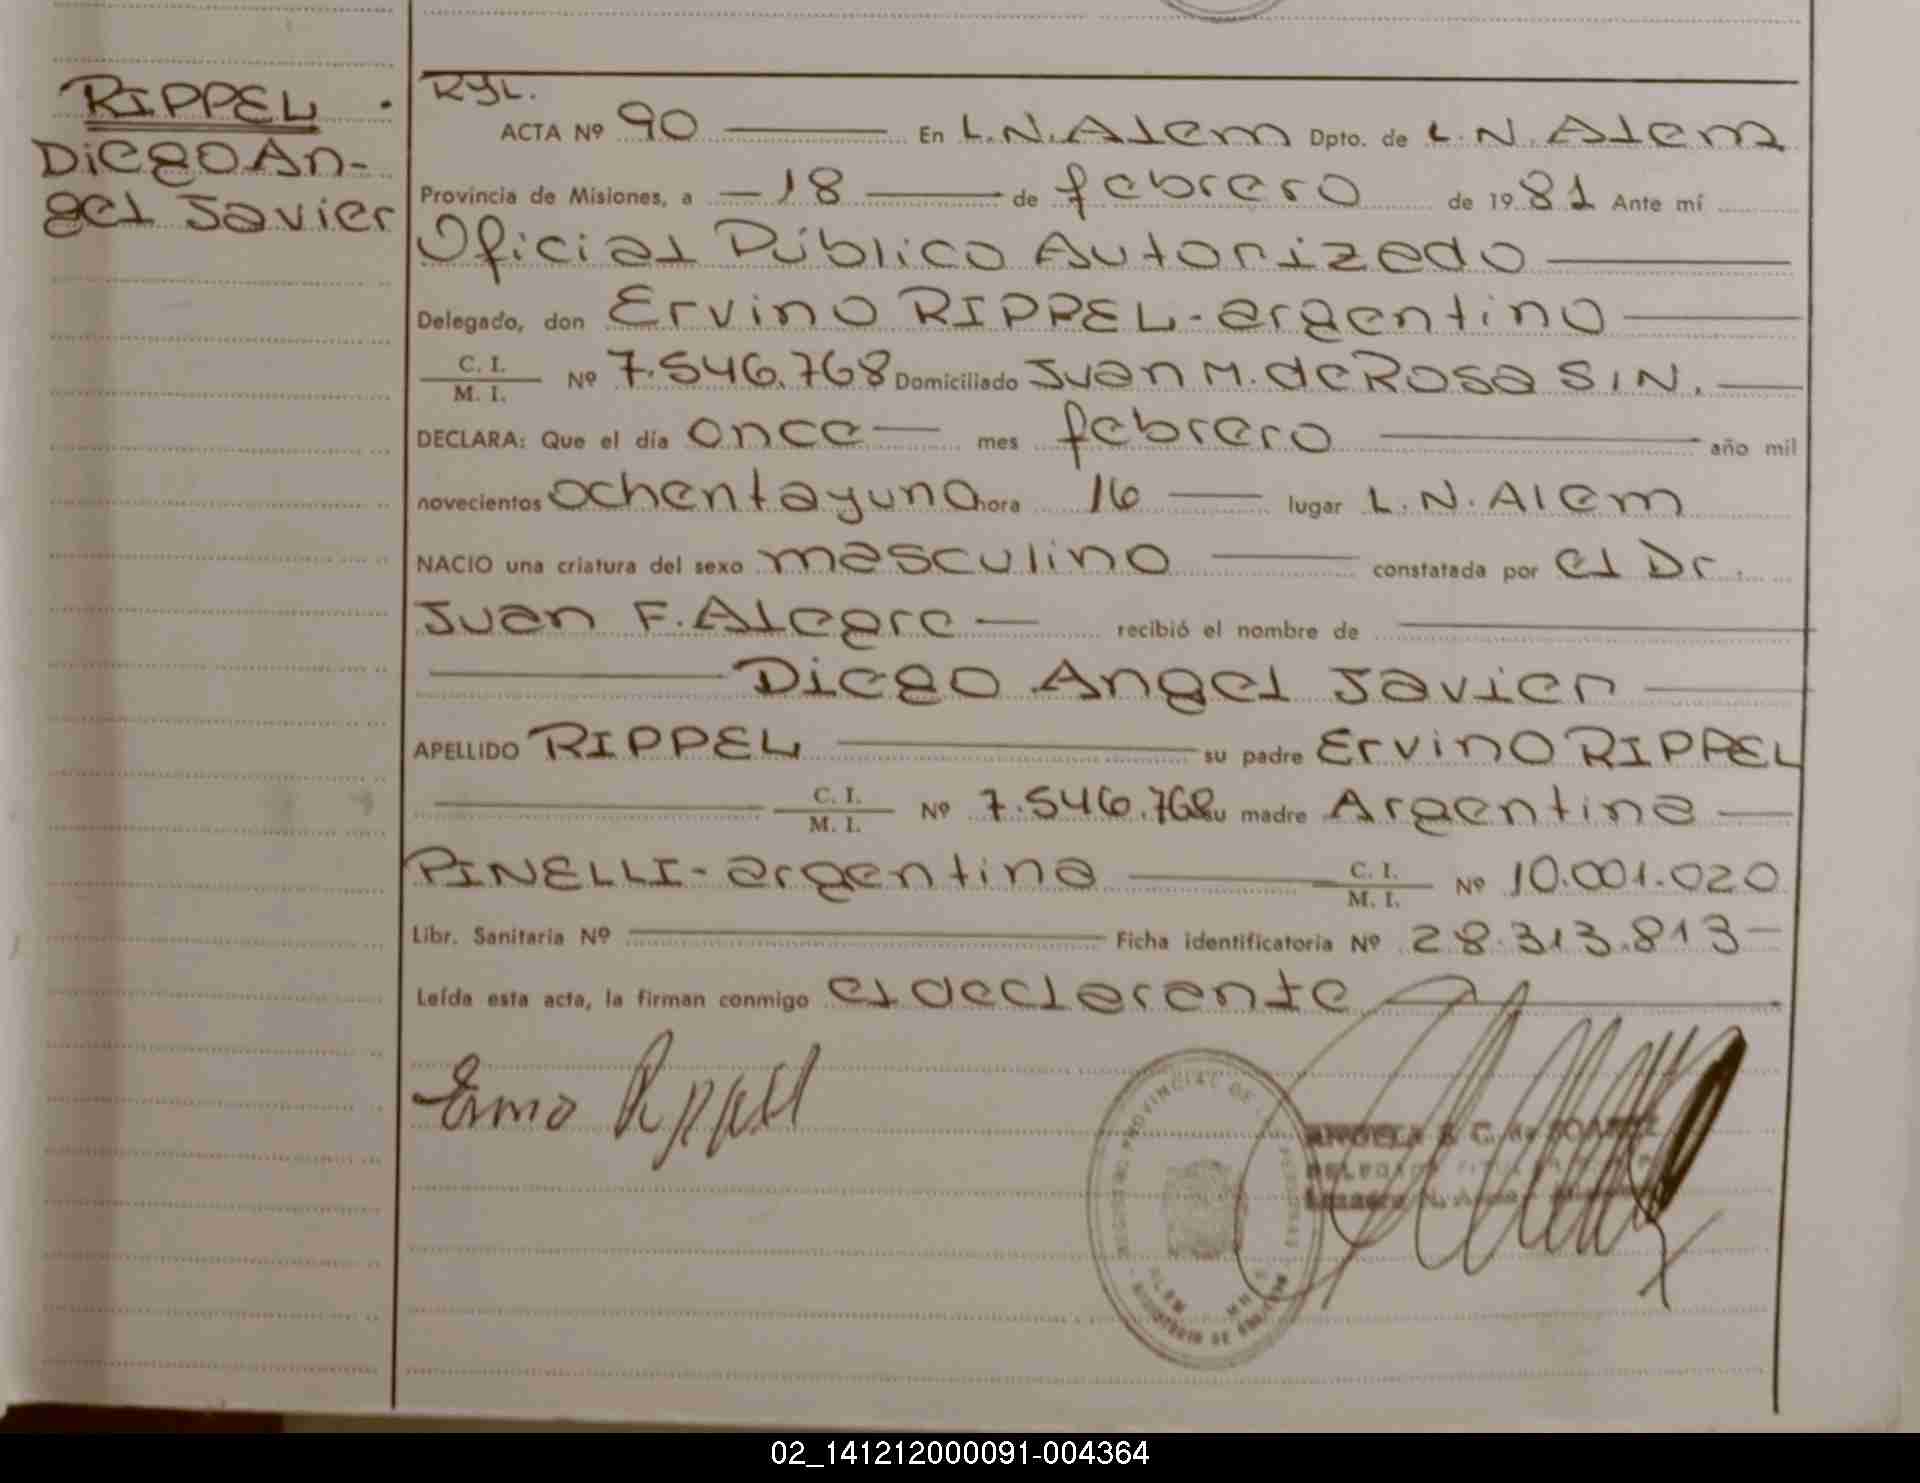 RIPPEL
Diego An-
gel Javier
RyL.
ACTA Nº 90 En L.N. Alem Dpto. de L.N. Alem
Provincia de Misiones, a 18 de febrero de 1981 Ante mí
Oficial Público Autorizado
Delegado, don Ervino RIPPEL - argentino
C. I.
M. I. Nº 7.546.768 Domiciliado Juan M. de Rosa S/N.
DECLARA: Que el día once mes febrero año mil
novecientos ochentayuno hora 16 lugar L.N. Alem
NACIO una criatura del sexo masculino constatada por el Dr.
Juan F. Alegre recibió el nombre de
Diego Angel Javier
APELLIDO RIPPEL su padre Ervino RIPPEL
C. I.
M. I. Nº 7.546.768 su madre Argentina
PINELLI - argentina C. I.
M. I. Nº 10.001.020
Libr. Sanitaria Nº Ficha identificatoria Nº 28.313.813
Leída esta acta, la firman conmigo el declarante
REGISTRO PROVINCIAL DE PERSONAS
ALEM
MINISTERIO DE GOBIERNO
02_141212000091-004364